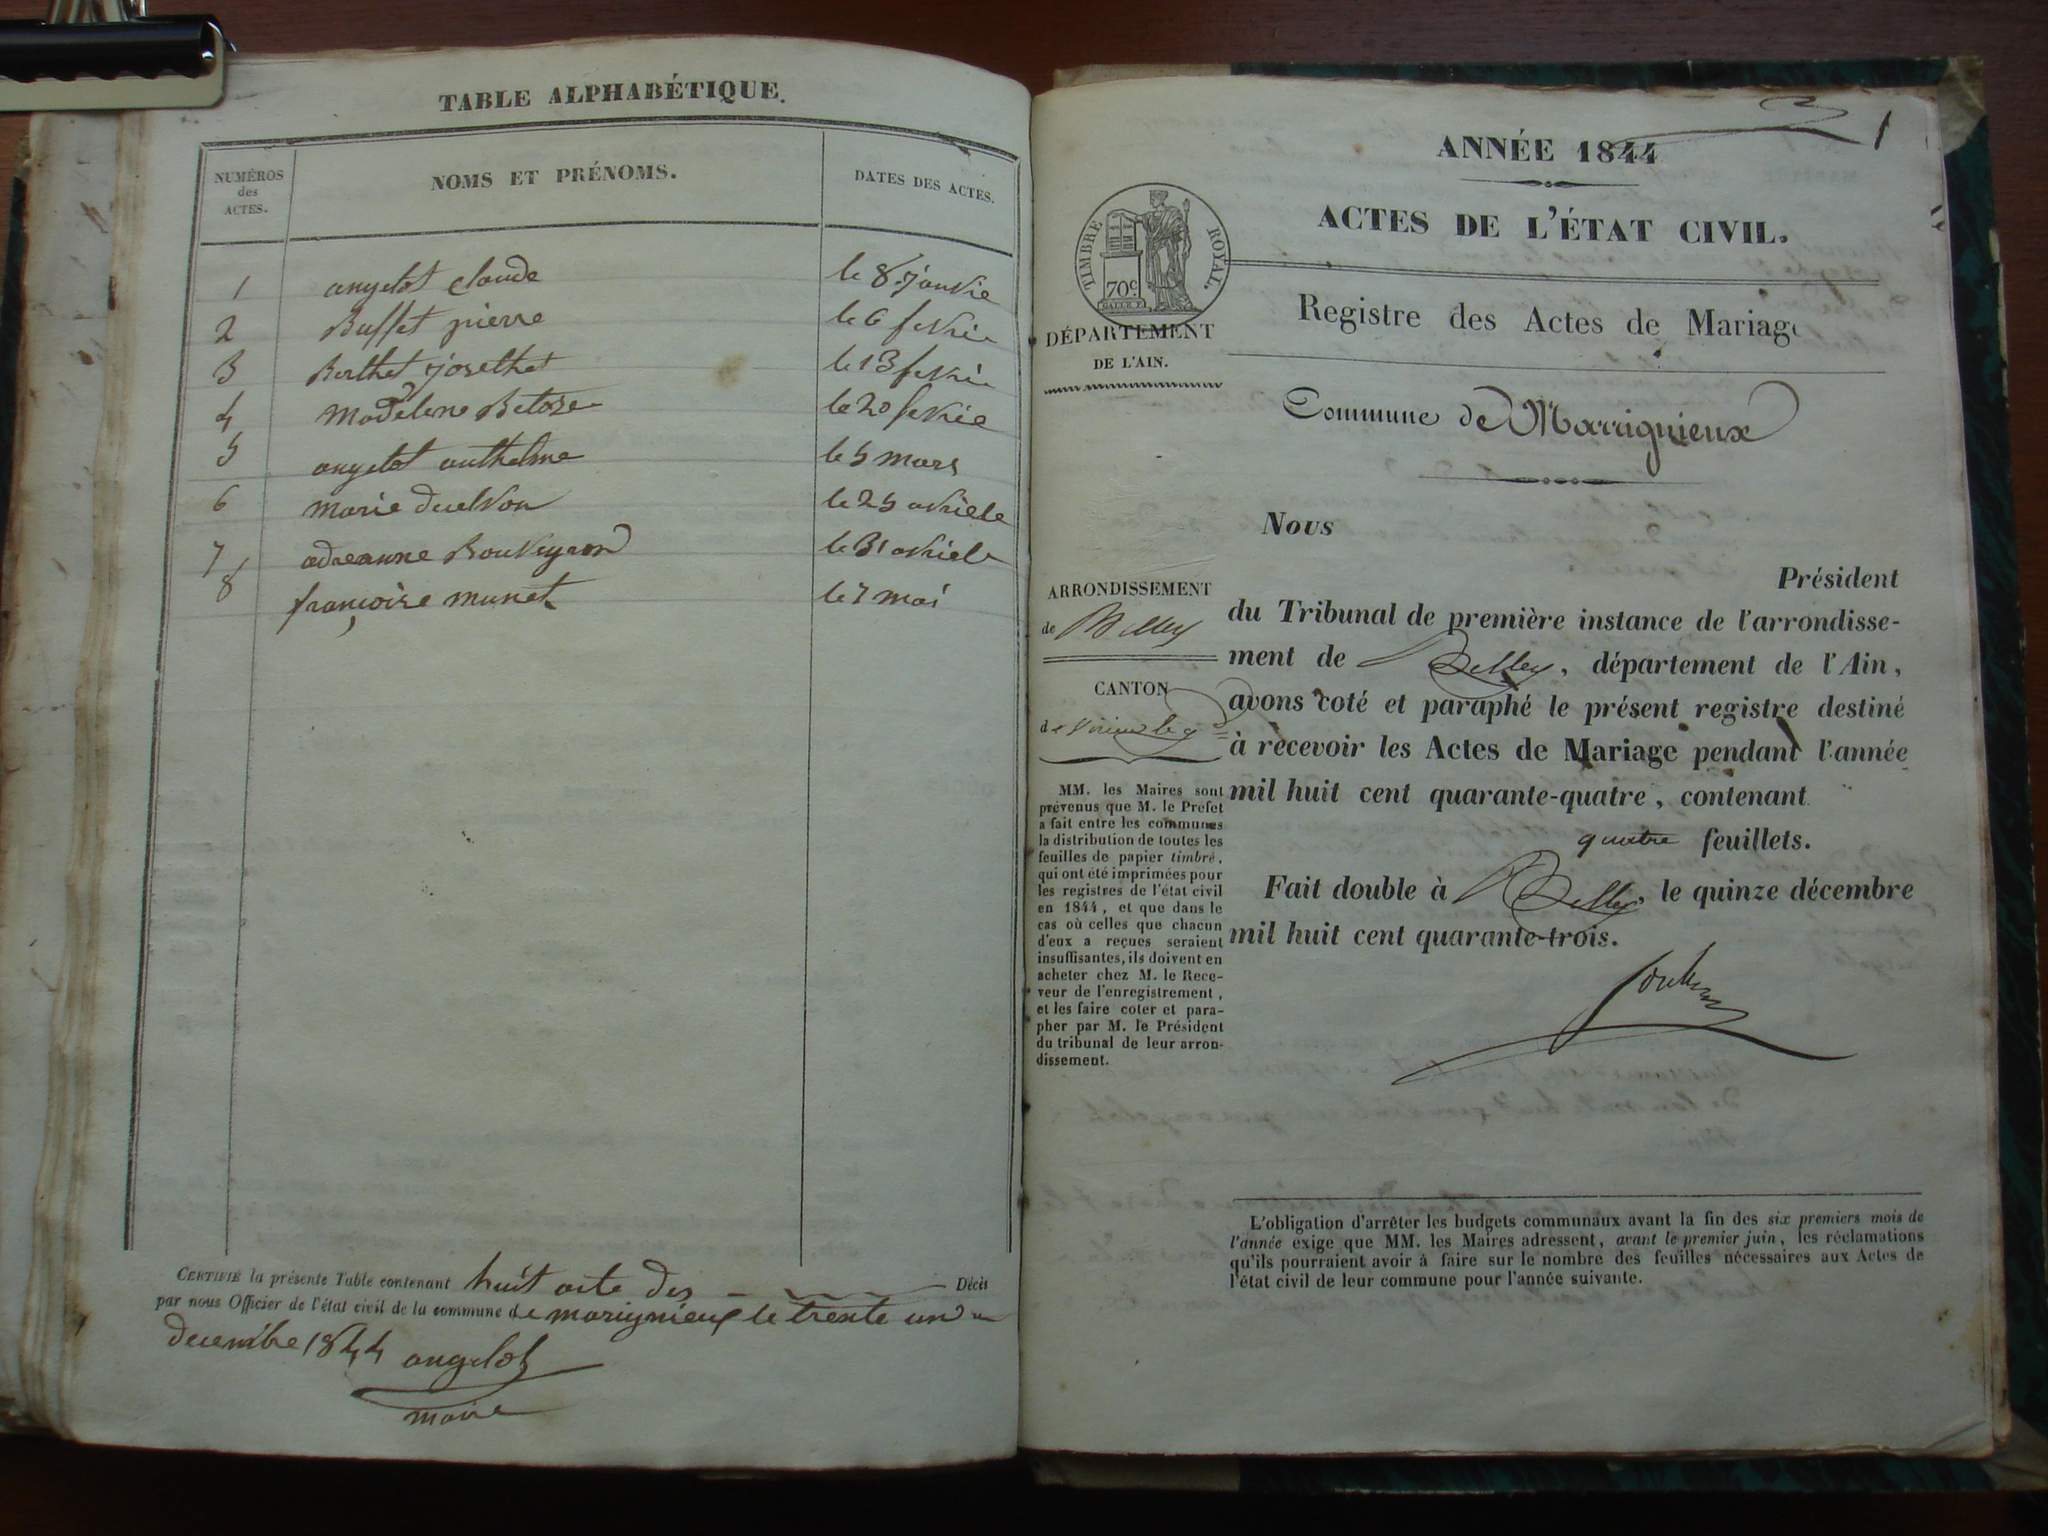 TABLE ALPHABÉTIQUE.
NUMÉROS des ACTES. NOMS ET PRÉNOMS. DATES DES ACTES.
1 angelot claude le 8 janvie
2 Buffet pierre le 6 fevrie
3 Berthet josethet le 13 fevrie
4 Madelene Betoze le 20 fevrie
5 angelot anthelme le 5 mars
6 marie duelvon le 25 avriele
7 adreanne Bouveyron le 31 avriele
8 françoise munet le 7 mai
CERTIFIÉ la présente Table contenant huit acte des Décès
par nous Officier de l'état civil de la commune de marignieux le trente un
decembre 1844 angelot
maire
1
ANNÉE 1844
ACTES DE L'ÉTAT CIVIL.
TIMBRE ROYAL.
70c
Registre des Actes de Mariage
DÉPARTEMENT
DE L'AIN.
Commune de Marrignieux
Nous
Président
du Tribunal de première instance de l'arrondisse-
ment de Belley, département de l'Ain,
avons coté et paraphé le présent registre destiné
à recevoir les Actes de Mariage pendant l'année
mil huit cent quarante-quatre, contenant
quatre feuillets.
Fait double à Belley, le quinze décembre
mil huit cent quarante-trois.
ARRONDISSEMENT
de Belley
CANTON
de Virieu le g
MM. les Maires sont
prévenus que M. le Préfet
a fait entre les communes
la distribution de toutes les
feuilles de papier timbré,
qui ont été imprimées pour
les registres de l'état civil
en 1844, et que dans le
cas où celles que chacun
d'eux a reçues seraient
insuffisantes, ils doivent en
acheter chez M. le Rece-
veur de l'enregistrement,
et les faire coter et para-
pher par M. le Président
du tribunal de leur arron-
dissement.
L'obligation d'arrêter les budgets communaux avant la fin des six premiers mois de
l'année exige que MM. les Maires adressent, avant le premier juin, les réclamations
qu'ils pourraient avoir à faire sur le nombre des feuilles nécessaires aux Actes de
l'état civil de leur commune pour l'année suivante.